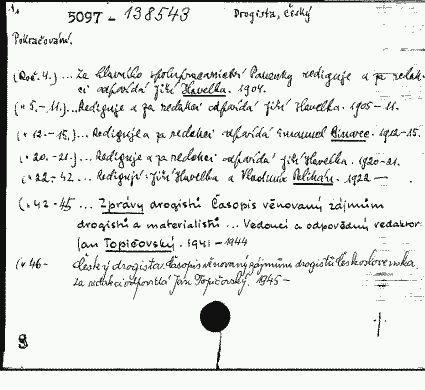 5097 - 138543 Drogista, Český
Pokračování.
(Roč. 4.) ... Za hlavního spolupracovnictví Panenky rediguje a za redak-
cí odpovídá Jiří Havelka. 1904.
(" 5. - 11.) ... Rediguje a za redakci odpovídá Jiří Havelka. 1905 - 11.
(" 12. - 15.) ... Rediguje a za redakci odpovídá Emanuel Binovec. 1912-15.
(" 20. - 21.) ... Rediguje a za redakci odpovídá Jiří Havelka. 1920-21.
(" 22. - 42. ... Redigují Jiří Havelka a Vladimír Pelikán. 1922 -
(" 42 - 45 ... Zprávy drogistů Časopis věnovaný zájmům
drogistů a materialistů ... Vedoucí a odpovědný redaktor
Jan Topičovský. 1941 - 1944
(" 46 - Český drogista. Časopis věnovaný zájmům drogistů Československa.
Za redakci odpovídá Jan Topičovský. 1945 -